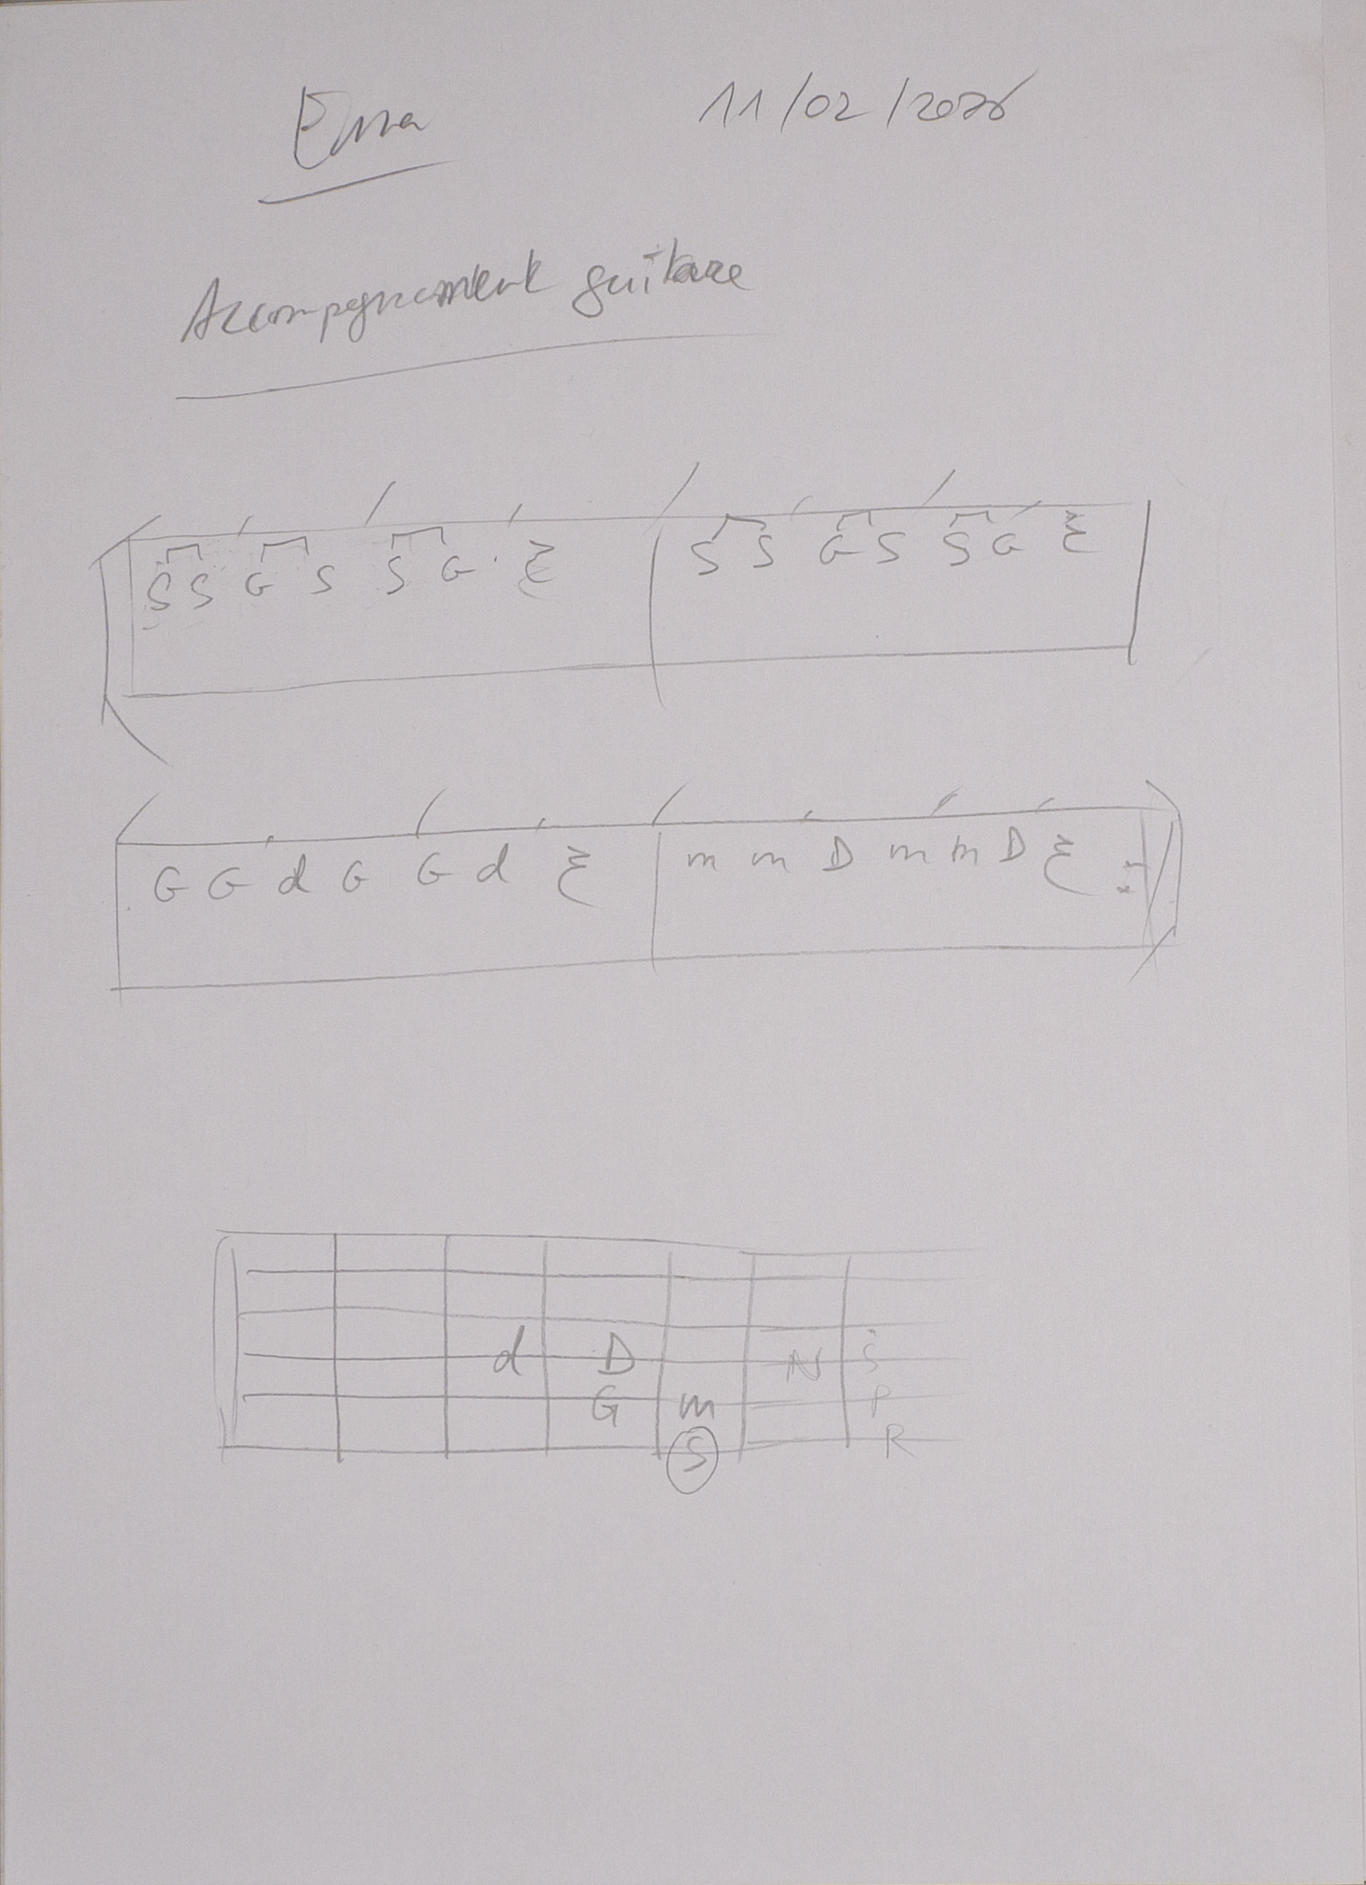 Ema 11/02/2026
Accompagnement guitare
S S G S S G S S G S S G
G G d G G d m m D m m D
d D N S
G m P
S R